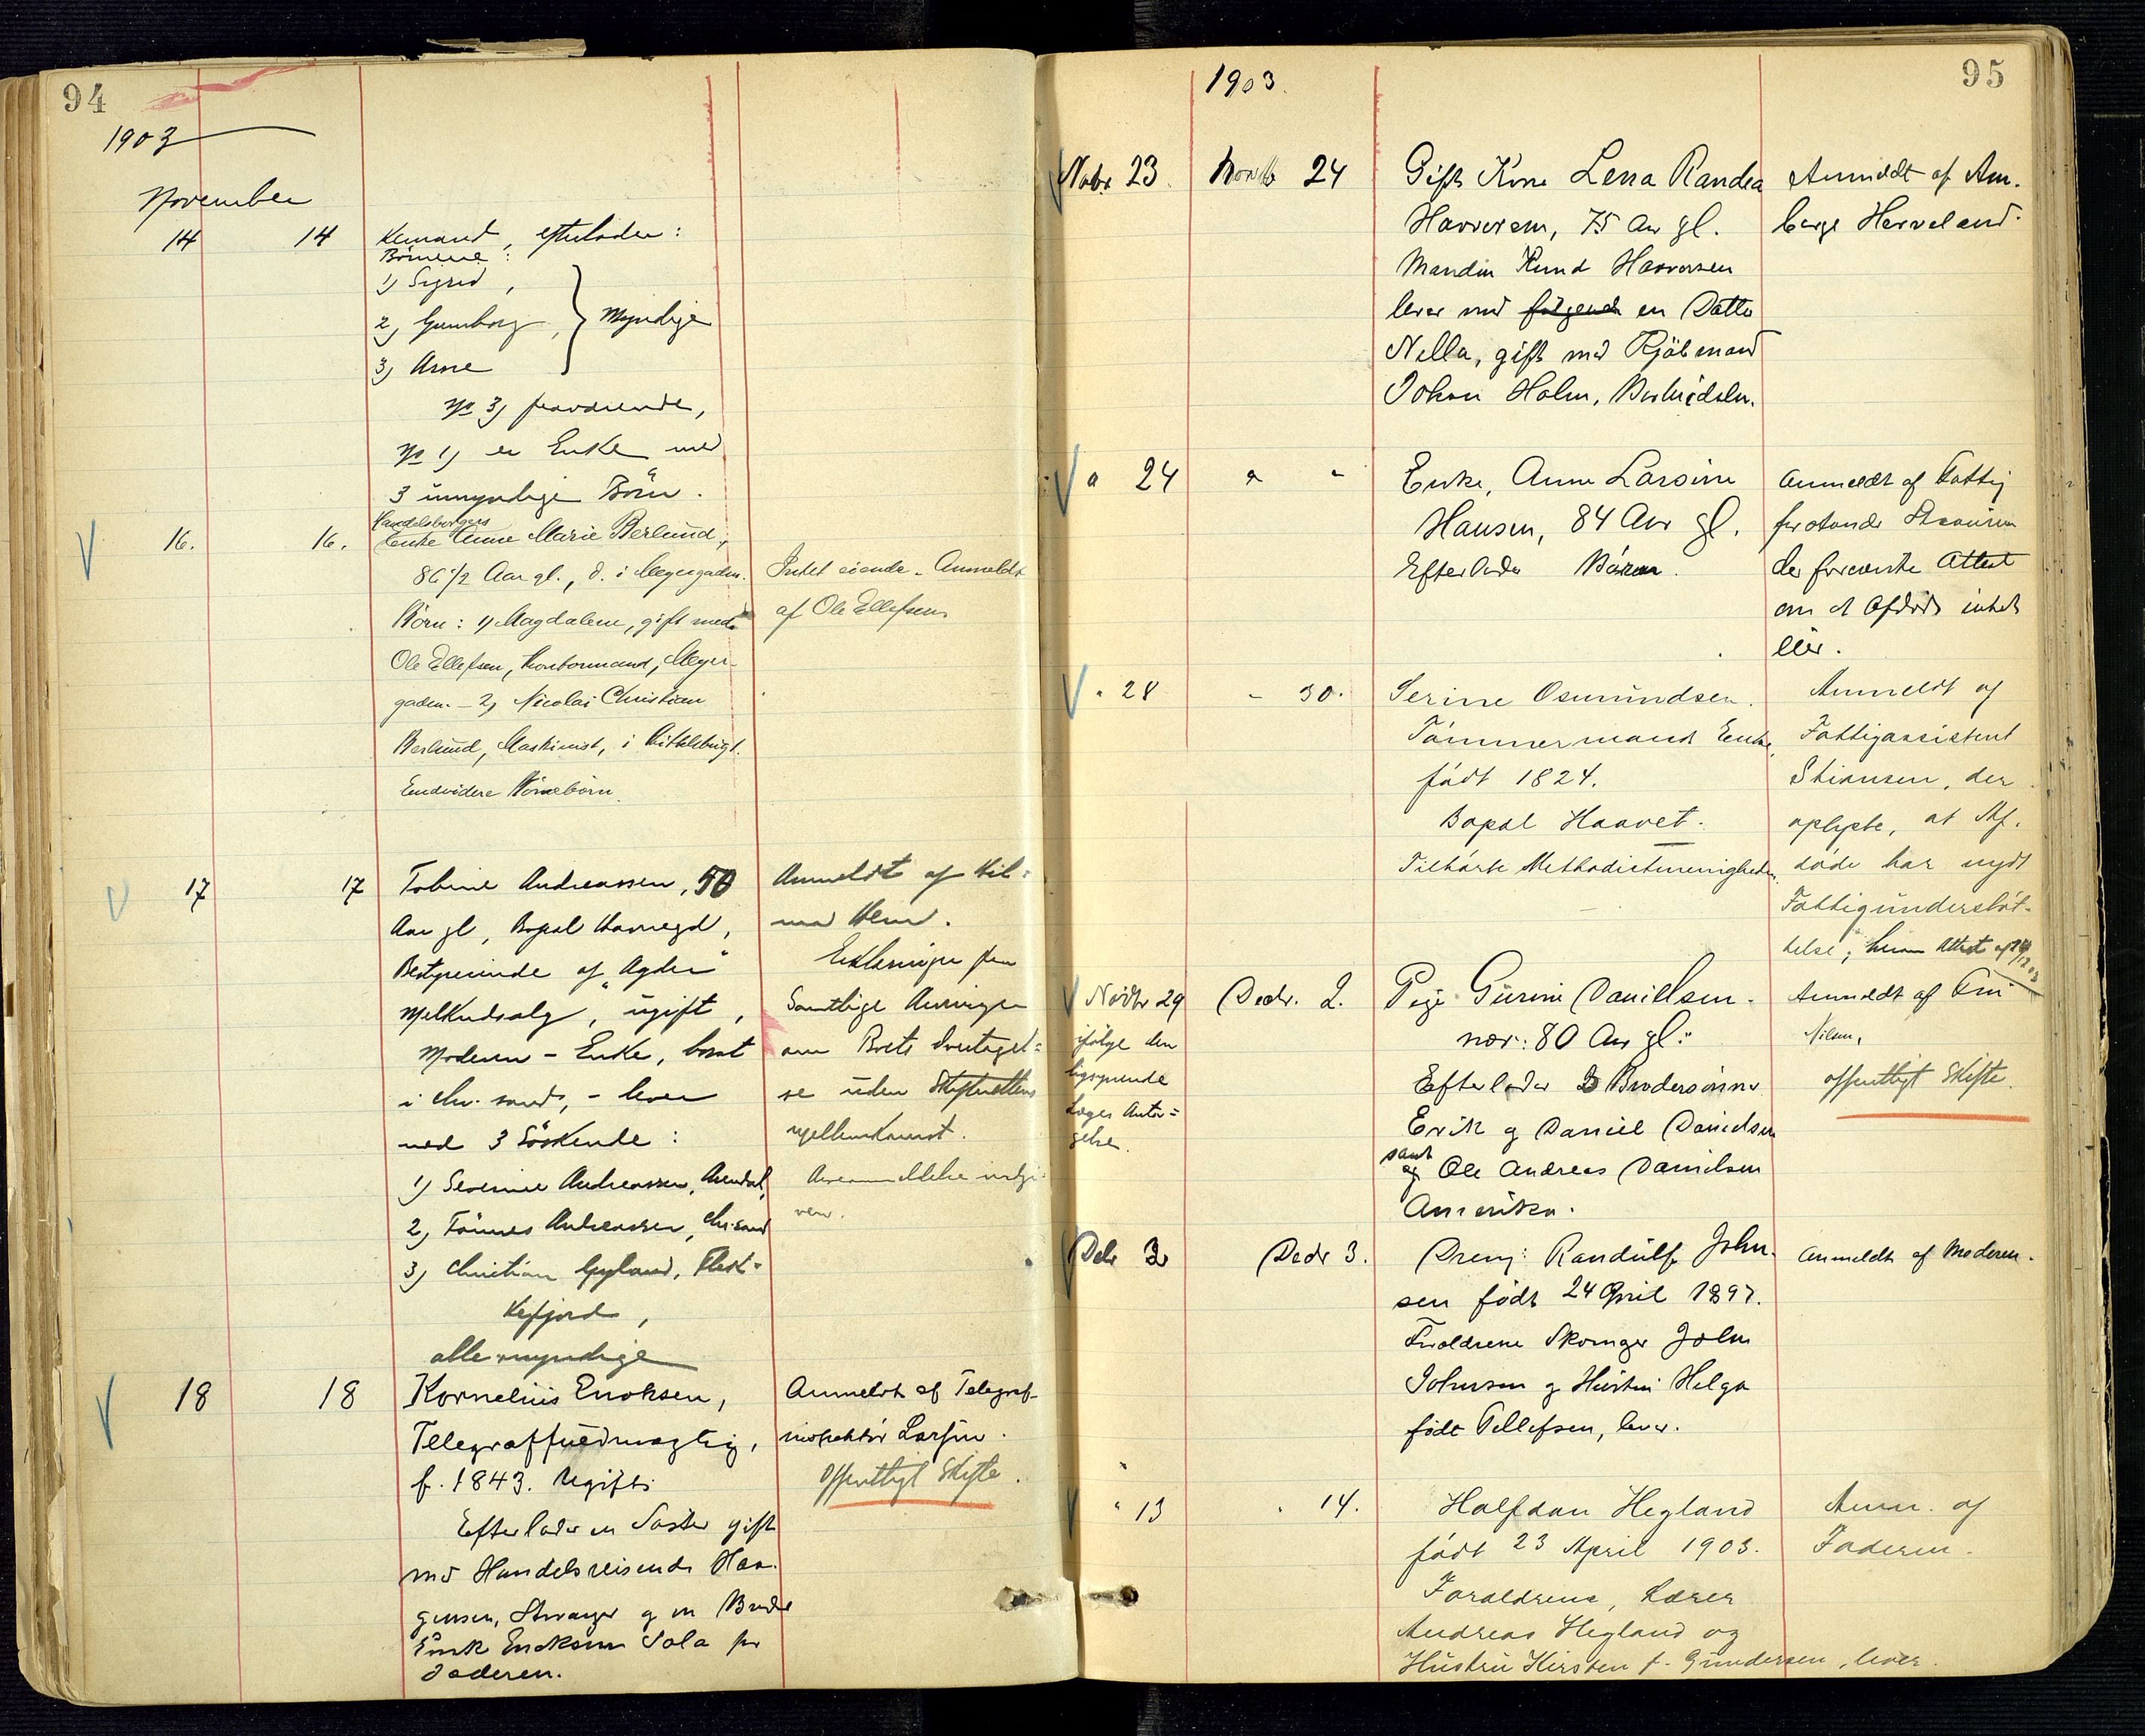 94
1903
November
14 14 Kemand, efterlader:
Børnene:
1) Sigrid,
2) Gunborg, Myndige
3) Arne
No 3) fraværende,
No 1) er Enke med
3 umyndige Børn.
16. 16. Handelsborgers
Enke Anne Marie Berlund,
86 1/2 Aar gl., d. i Meyergaden. Intet eiende - Anmeldt
Børn: 1) Magdalene, gift med af Ole Ellefsen
Ole Ellefsen, Kontormand, Meyer-
gaden. - 2) Nicolai Christian
Berlund, Maskinist, i
Endvidere Børnebørn.
17 17 Tobine Andreassen, 50 Anmeldt af Hil-
Aar gl, Bopæl Havnegd,
Bestyrerinde af "Agder" Erklæringer fra
Melkudsalg, ugift, Samtlige Arvinger
Moderen - Enke, bosat om Boets Overtagel-
i Chr. sand, - lever se uden Skifterettens
med 3 Søskende: mellemkomst.
1) Severine Andreassen, Arendal,
2) Tønnes Andreassen, Chr.sand
3) Christian Gyland, Flek-
kefjord,
alle myndige
18 18 Kornelius Enoksen, Anmeldt af Telegraf-
Telegraffuldmægtig, inspektør Larsen.
f. 1843. Ugift. Offentligt Skifte.
Efterlader en Søster gift
med Handelsreisende Haa-
gensen, Stavanger og en Broder
Enok Enoksen Sola pr
Jæderen.
95
1903.
Novbr 23. Novb 24 Gift Kone Lena Randea Anmeldt af Am-
Haaversen, 75 Aar gl. berge Herveland.
Manden Knud Haaversen
lever med følgende en Datter
Nella, gift med Kjøbmand
Johan Holm,
" 24 " " Enke, Anne Larsine Anmeldt af Fattig
Hansen, 84 Aar gl. forstander
Efterlader Børn. der foreviste Attest
om at Afdøde intet
eier.
" 28 " 30. Serine Osmundsen. Anmeldt af
Tømmermands Enke, Fattigassistent
født 1824. Stiansen, der
Bopæl Haavet. oplyste, at Af-
Tilhørte Methodistmenigheden. døde har nydt
Fattigunderstøt-
telse,
Novbr 29 Decbr. 2. Pige Gurine Danielsen. Anmeldt af
ifølge den nær: 80 Aar gl: Nilsen,
ligsynende Efterlader 3 Brodersønner offentligt Skifte.
Læges Anta-
gelse. Erik og Daniel Danielsen
samt
og Ole Andreas Danielsen
Amerika.
Decbr 2 Decbr 3. Dreng: Randulf John- Anmeldt af Moderen.
sen født 24 April 1897.
Forældrene Skomager John
Johnsen og Hustru Helga
født Tellefsen, lever.
" 13 " 14. Halfdan Hegland Anm. af
født 23 April 1903. Faderen.
Forældrene, Lærer
Andreas Hegland og
Hustru Kirsten f. Gundersen, lever.